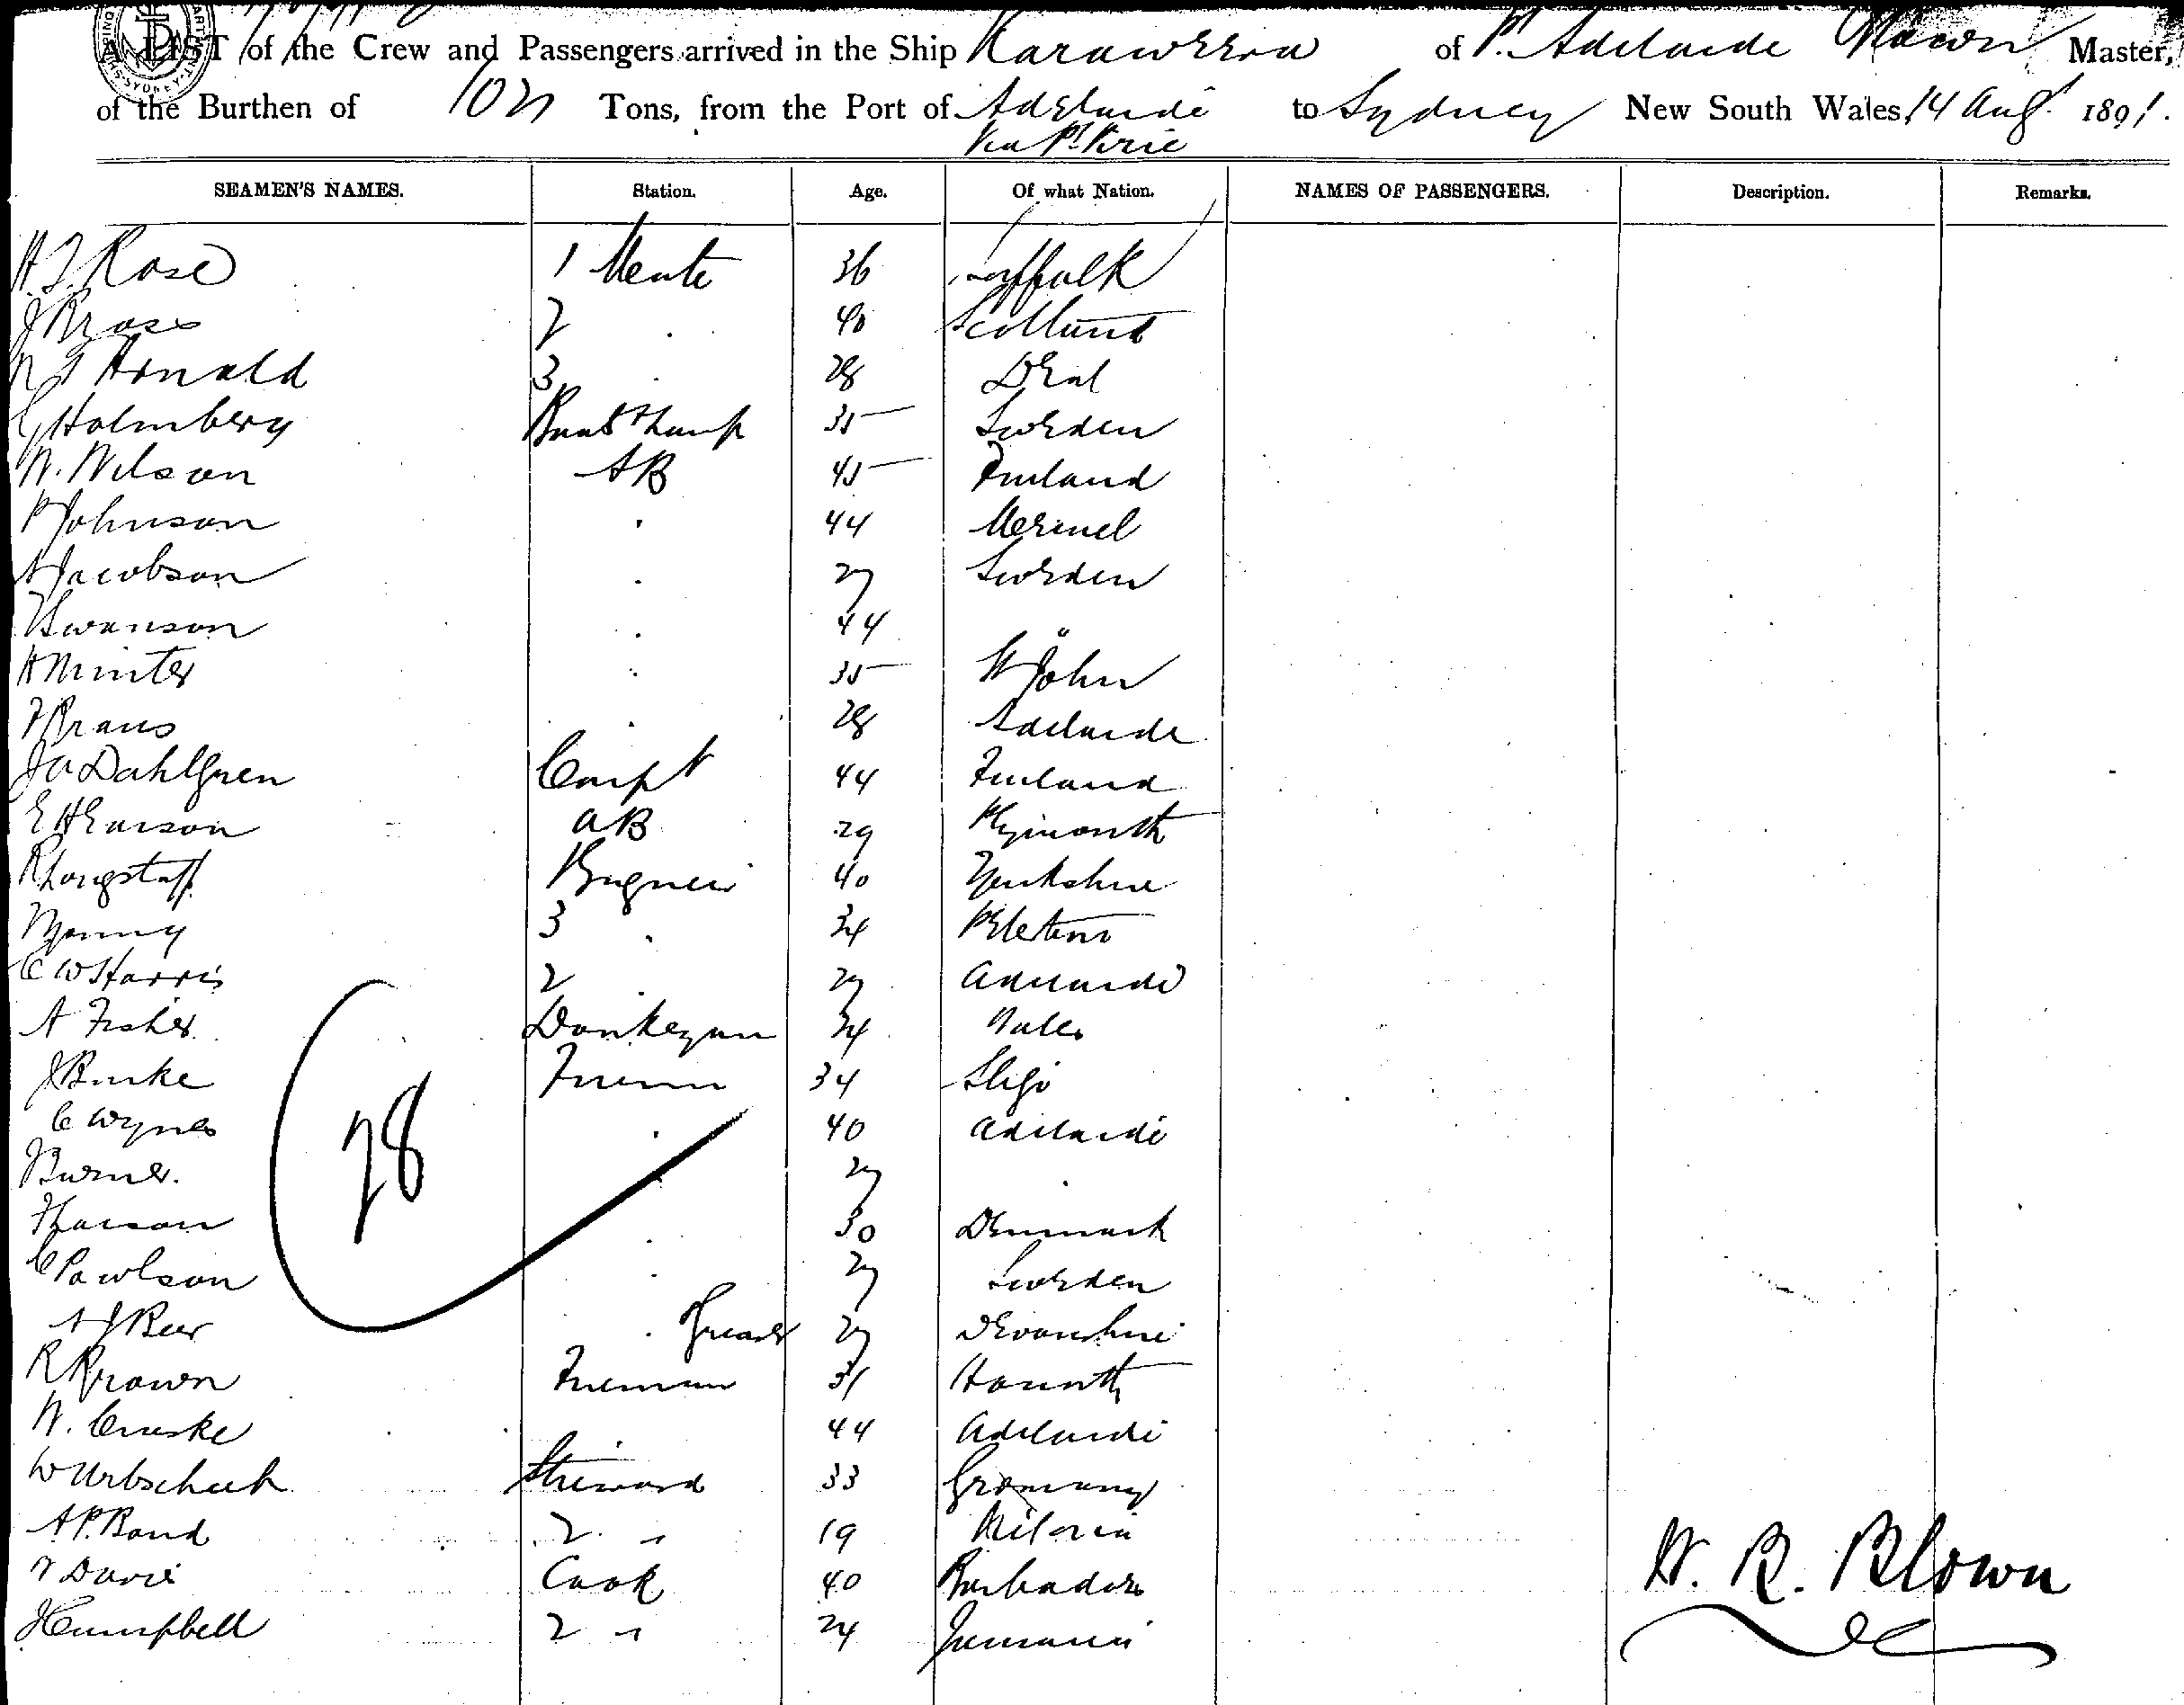 A LIST of the Crew and Passengers arrived in the Ship Karaweera of Pt. Adelaide Master,
of the Burthen of Tons, from the Port of Adelaide to Sydney New South Wales, 14 Aug. 1891.
Via Pt Pirie
SEAMEN'S NAMES. Station. Age. Of what Nation. NAMES OF PASSENGERS. Description. Remarks.
Rose 1 Mate 36 Suffolk
J Bross 2 . 40 Scotland
Arnold 3 . 28 Deal
Holmberg 35 Sweden
N. Nilson AB 45 Finland
P Johnson . 44
A Jacobson . 27 Sweden
Swanson . 44 "
H Minter . 35 St John
F Kraus . 28 Adelaide
J A Dahlgren Carpt 44 Finland
E H Earson AB 29 Plymouth
R Longstaff 40 Yorkshire
3 . 34
C W Harris 2 . 27 Adelaide
A Fisher Donkeyman 34 Wales
J Burke Fireman 34 Sligo
C Wynes . 40 Adelaide
27 .
. 30 Denmark
C Pawlson . 27 Sweden
A J Beer . Greaser 27 Devonshire
R Brown Fireman 31
W. Cruske 44 Adelaide
W Urbscheck Steward 33 Germany
A P. Bond 2 " 19 Victoria
Davis Cook 40 Barbados
J Campbell 2 " 24 Jamaica
28
W. R. Blown